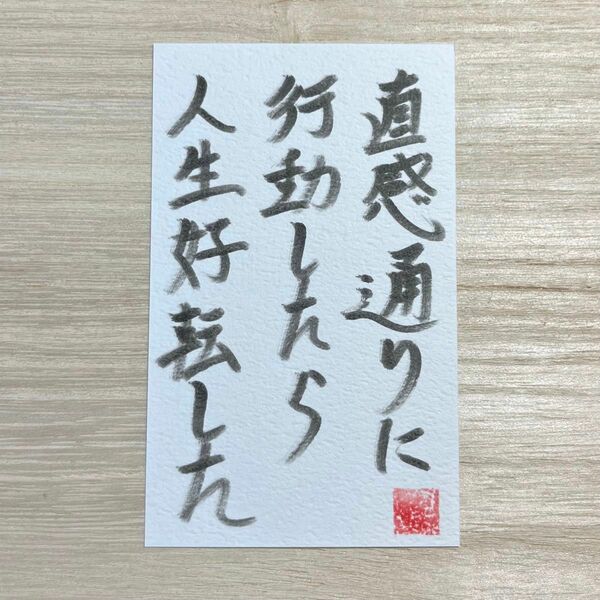 直感通りに
行動したら
人生好転した